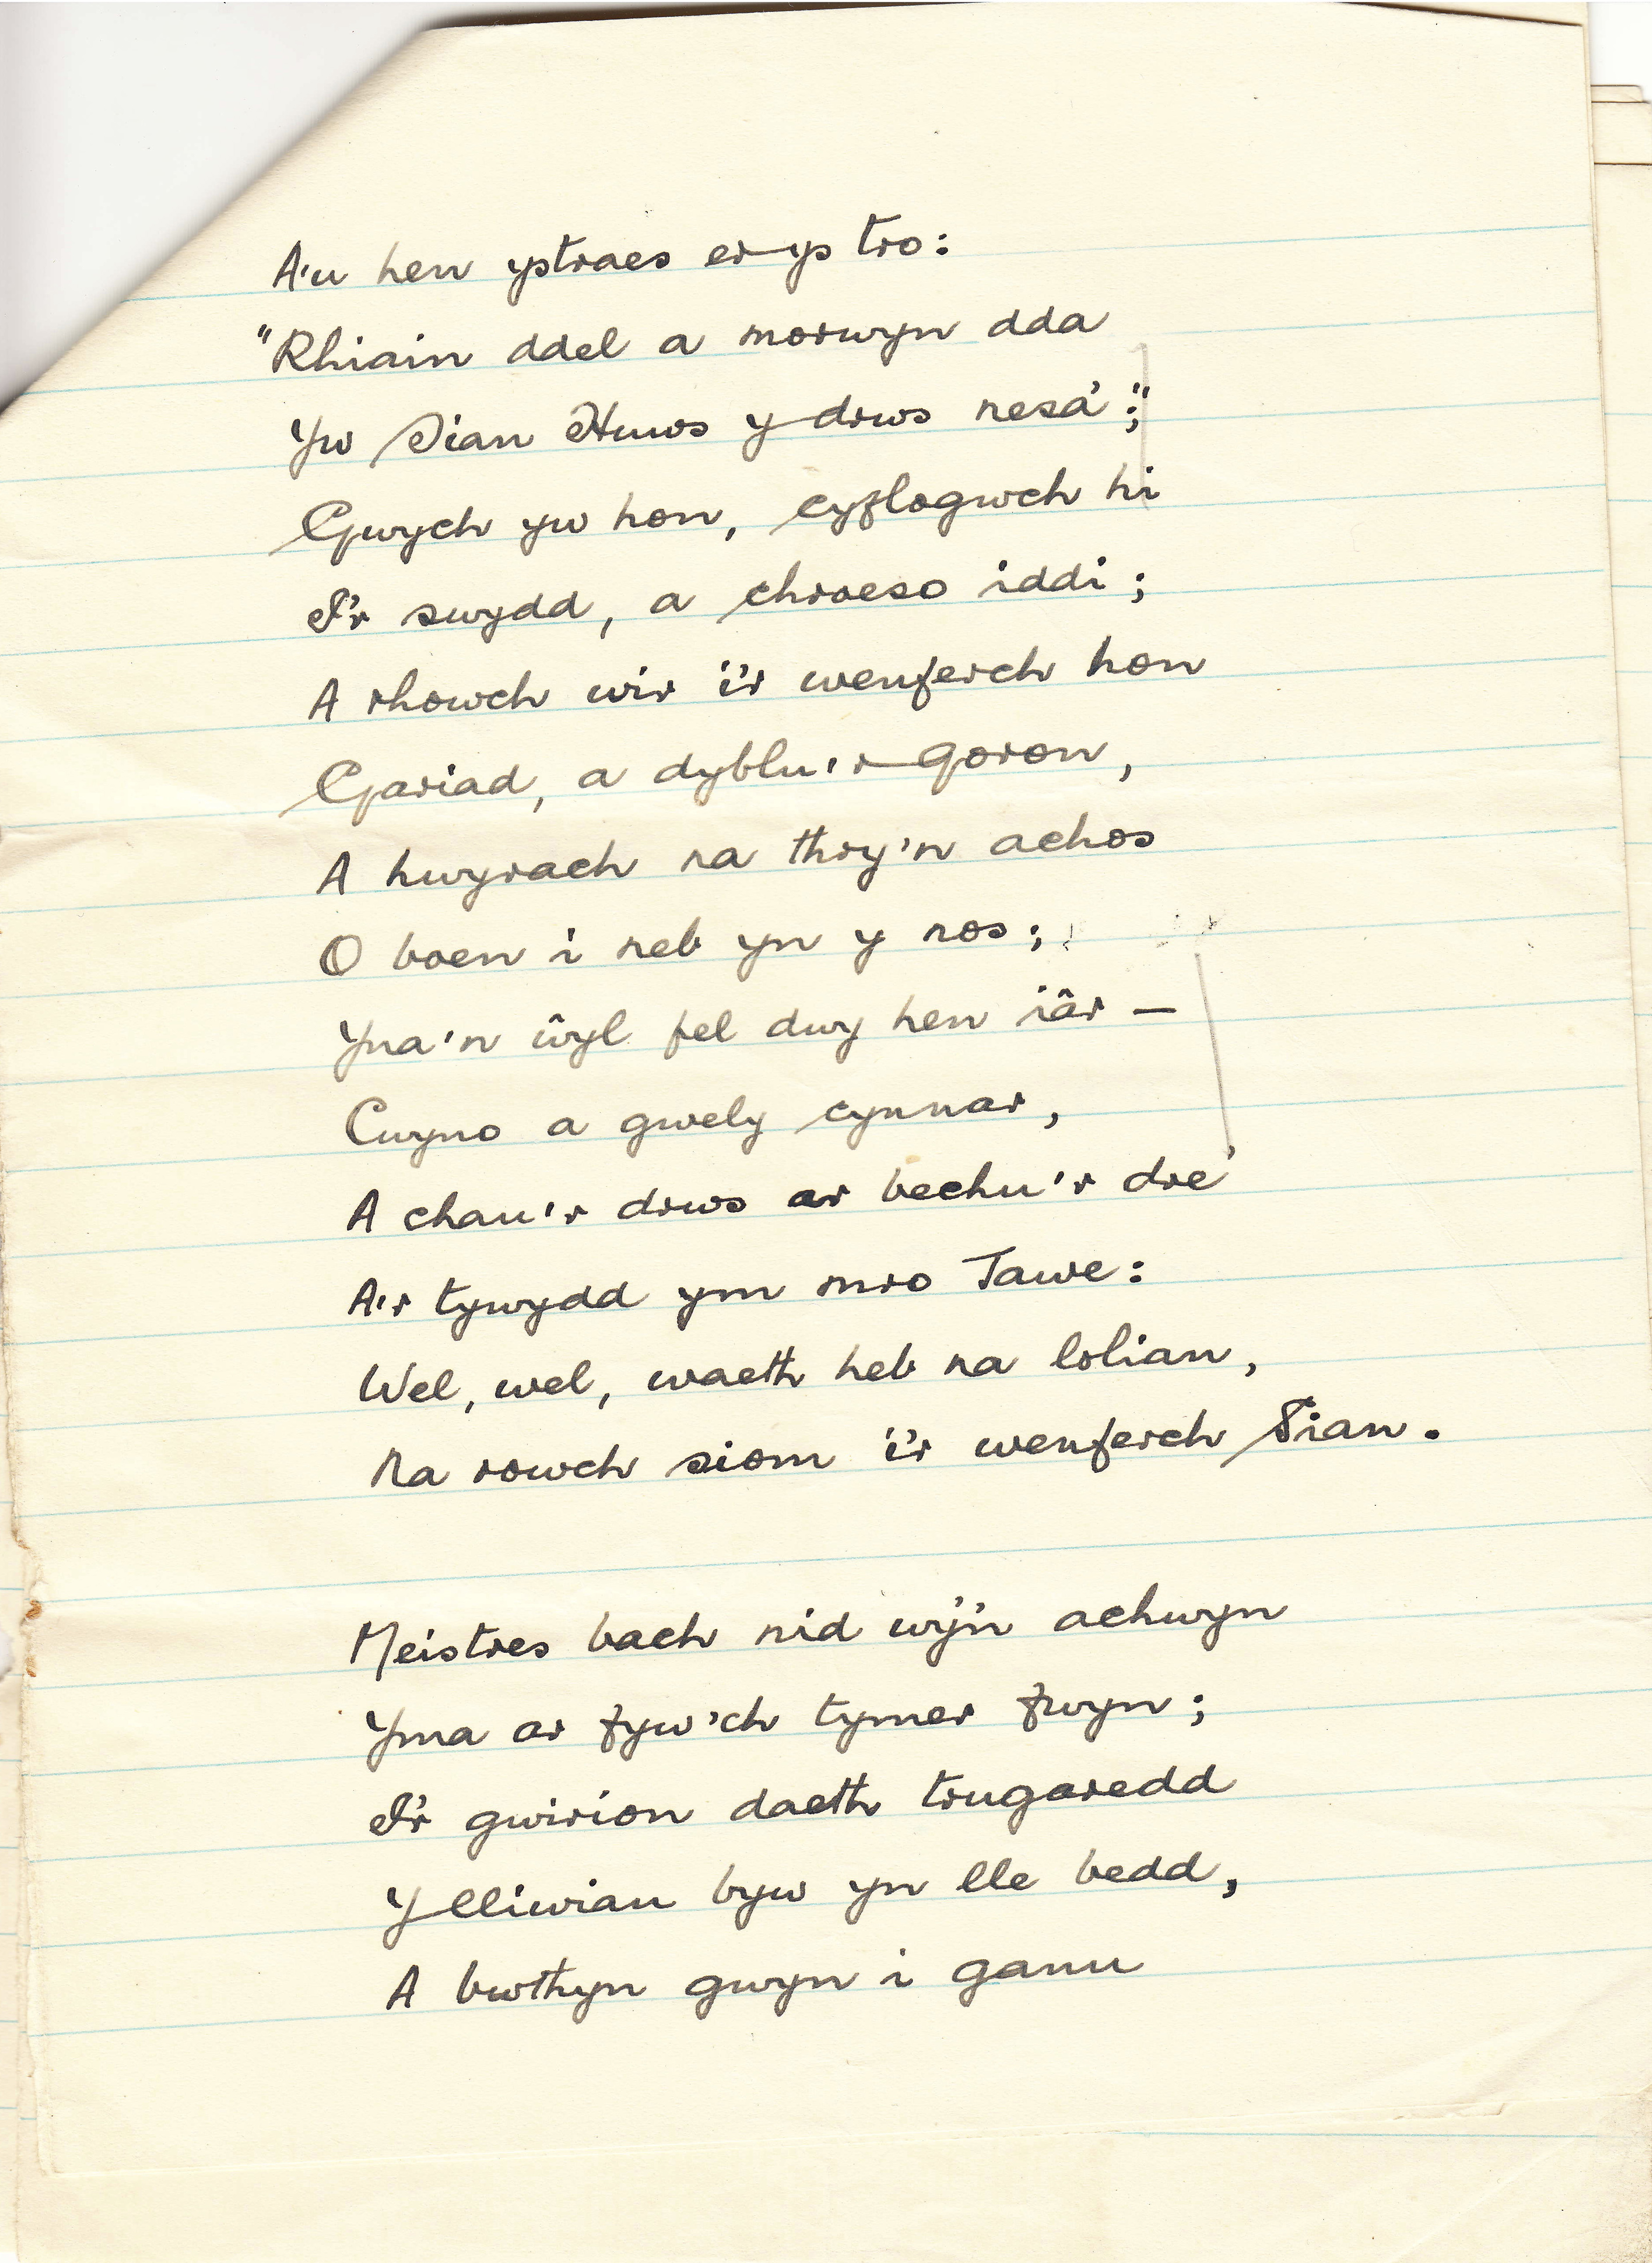 A'u hen ystraes er ys tro:
"Rhiain ddel a morwyn dda
Yw Sian Huws y drws nesa';"
Gwych yw hon, cyflogwch hi
I'r swydd, a chroeso iddi;
A rhowch wir i'r wenferch hon
Gariad, a dyblu'r goron,
A hwyrach na thry'n achos
O boen i neb yn y nos;
Yna'n ŵyl fel dwy hen iâr —
Cwyno a gwely cynnar,
A chau'r drws ar bechu'r dre'
A'r tywydd ym mro Tawe:
Wel, wel, waeth heb na lolian,
Na rowch siom i'r wenferch Sian.
Meistres bach nid wy'n achwyn
Yma ar fyw'ch tymer fwyn;
I'r gwirion daeth trugaredd
Y lliwiau byw yn lle bedd,
A bwthyn gwyn i ganu